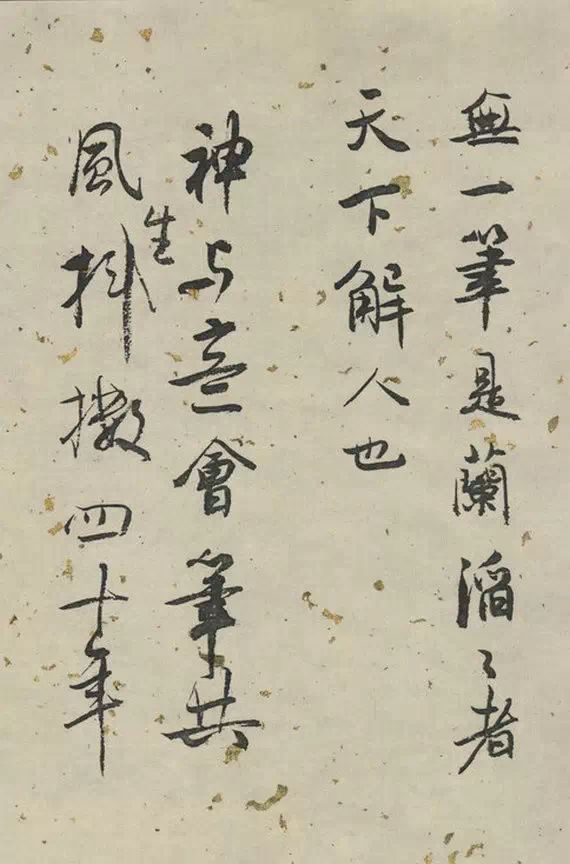 無一筆是蘭滔〻者
天下解人也
神与意會筆共
風生抖擻四十年